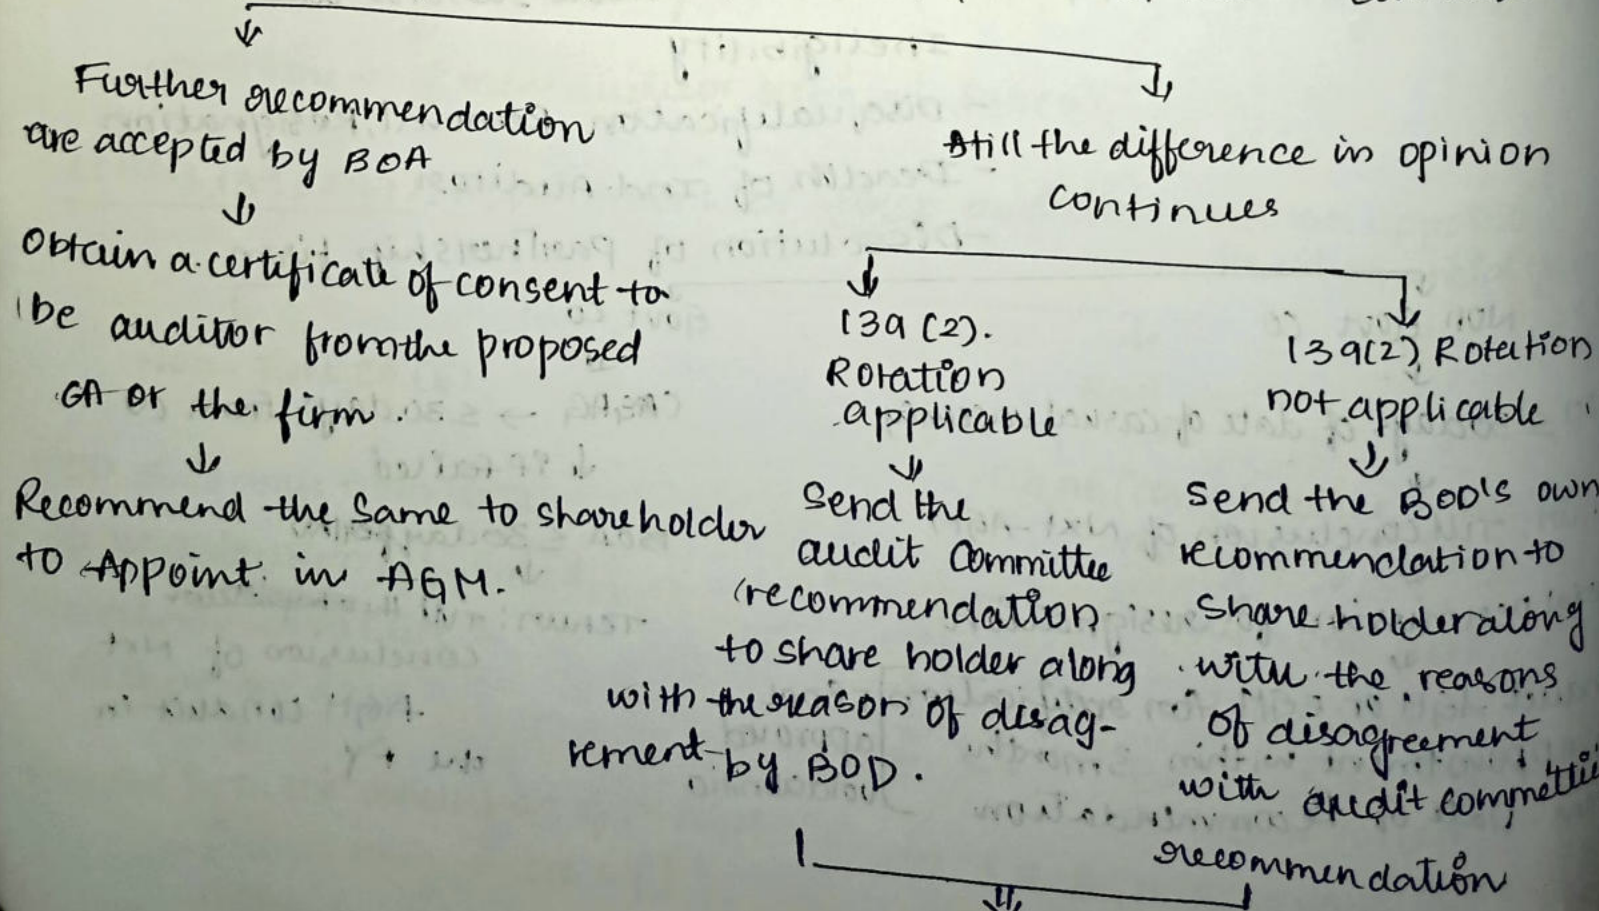 Further recommendation
are accepted by BOA
Obtain a certificate of consent to
be auditor from the proposed
CA or the firm.
Recommend the same to shareholder
to Appoint in AGM.
still the difference in opinion
continues
139(2).
Rotation
applicable
Send the
audit committee
recommendation
to share holder along
with the reason of disag-
rement by BOD.
139(2) Rotation
not applicable
Send the BOD's own
recommendation to
share holder along
with the reasons
of disagreement
with audit committee
recommendation